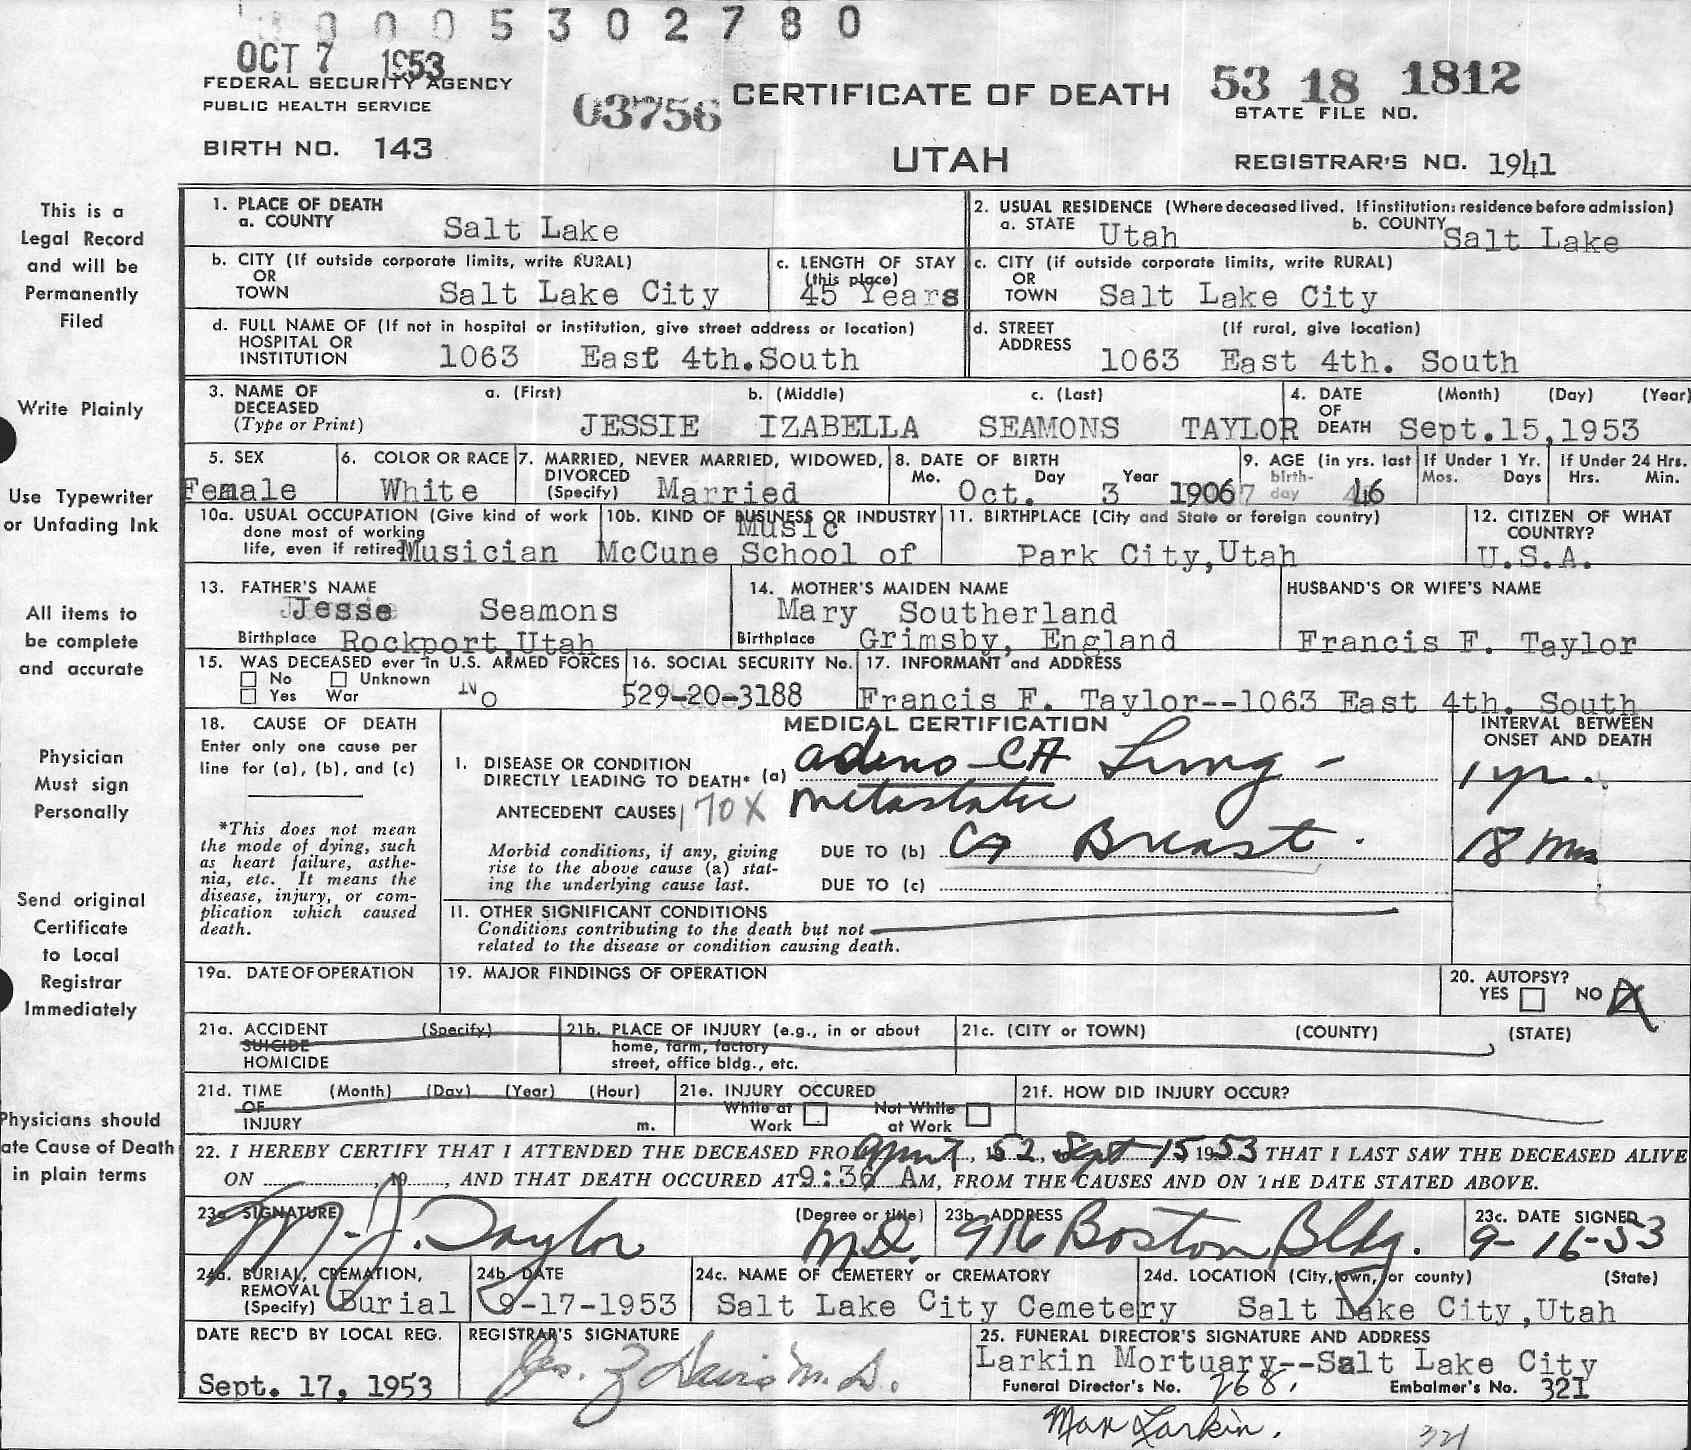 0005302780
OCT 7 1953
FEDERAL SECURITY AGENCY
PUBLIC HEALTH SERVICE
BIRTH NO. 143
03756
CERTIFICATE OF DEATH
UTAH
53 18 1812
STATE FILE NO.
REGISTRAR'S NO. 1941
This is a
Legal Record
and will be
Permanently
Filed
Write Plainly
Use Typewriter
or Unfading Ink
All items to
be complete
and accurate
Physician
Must sign
Personally
Send original
Certificate
to Local
Registrar
Immediately
Physicians should
ate Cause of Death
in plain terms
1. PLACE OF DEATH
a. COUNTY Salt Lake
2. USUAL RESIDENCE (Where deceased lived. If institution: residence before admission)
a. STATE Utah b. COUNTY Salt Lake
b. CITY (If outside corporate limits, write RURAL)
OR
TOWN Salt Lake City
c. LENGTH OF STAY
(this place)
45 Years
c. CITY (if outside corporate limits, write RURAL)
OR
TOWN Salt Lake City
d. FULL NAME OF (If not in hospital or institution, give street address or location)
HOSPITAL OR
INSTITUTION 1063 East 4th.South
d. STREET (If rural, give location)
ADDRESS 1063 East 4th. South
3. NAME OF a. (First) b. (Middle) c. (Last)
DECEASED
(Type or Print) JESSIE IZABELLA SEAMONS TAYLOR
4. DATE (Month) (Day) (Year)
OF
DEATH Sept.15,1953
5. SEX
Female
6. COLOR OR RACE
White
7. MARRIED, NEVER MARRIED, WIDOWED,
DIVORCED
(Specify) Married
8. DATE OF BIRTH
Mo. Day Year
Oct. 3 1906
9. AGE (in yrs. last
birth-
day 46
If Under 1 Yr.
Mos. Days
If Under 24 Hrs.
Hrs. Min.
10a. USUAL OCCUPATION (Give kind of work
done most of working
life, even if retired Musician
10b. KIND OF BUSINESS OR INDUSTRY
Music
McCune School of
11. BIRTHPLACE (City and State or foreign country)
Park City,Utah
12. CITIZEN OF WHAT
COUNTRY?
U.S.A.
13. FATHER'S NAME
Jesse Seamons
Birthplace Rockport,Utah
14. MOTHER'S MAIDEN NAME
Mary Southerland
Birthplace Grimsby, England
HUSBAND'S OR WIFE'S NAME
Francis F. Taylor
15. WAS DECEASED ever in U.S. ARMED FORCES
No Unknown
Yes War No
16. SOCIAL SECURITY No.
529-20-3188
17. INFORMANT and ADDRESS
Francis F. Taylor--1063 East 4th. South
18. CAUSE OF DEATH
Enter only one cause per
line for (a), (b), and (c)
*This does not mean
the mode of dying, such
as heart failure, asthe-
nia, etc. It means the
disease, injury, or com-
plication which caused
death.
MEDICAL CERTIFICATION
INTERVAL BETWEEN
ONSET AND DEATH
I. DISEASE OR CONDITION
DIRECTLY LEADING TO DEATH* (a) adeno-CA Lung - 1 yr.
ANTECEDENT CAUSES 170X metastatic
Morbid conditions, if any, giving
rise to the above cause (a) stat-
ing the underlying cause last.
DUE TO (b) CA Breast. 18 mos
DUE TO (c)
II. OTHER SIGNIFICANT CONDITIONS
Conditions contributing to the death but not
related to the disease or condition causing death.
19a. DATE OF OPERATION
19. MAJOR FINDINGS OF OPERATION
20. AUTOPSY?
YES NO
21a. ACCIDENT (Specify)
SUICIDE
HOMICIDE
21b. PLACE OF INJURY (e.g., in or about
home, farm, factory
street, office bldg., etc.
21c. (CITY or TOWN) (COUNTY) (STATE)
21d. TIME (Month) (Day) (Year) (Hour)
OF
INJURY m.
21e. INJURY OCCURED
While at Work
Not While at Work
21f. HOW DID INJURY OCCUR?
22. I HEREBY CERTIFY THAT I ATTENDED THE DECEASED FROM 1952, Sept 15 1953 THAT I LAST SAW THE DECEASED ALIVE
ON , 19 , AND THAT DEATH OCCURED AT 9:36 AM, FROM THE CAUSES AND ON THE DATE STATED ABOVE.
23a. SIGNATURE (Degree or title)
M. J. Taylor M.D.
23b. ADDRESS
916 Boston Bldg.
23c. DATE SIGNED
9-16-53
24a. BURIAL, CREMATION,
REMOVAL
(Specify) Burial
24b. DATE
9-17-1953
24c. NAME OF CEMETERY or CREMATORY
Salt Lake City Cemetery
24d. LOCATION (City, town, or county) (State)
Salt Lake City,Utah
DATE REC'D BY LOCAL REG.
Sept. 17, 1953
REGISTRAR'S SIGNATURE
Davis M.D.
25. FUNERAL DIRECTOR'S SIGNATURE AND ADDRESS
Larkin Mortuary--Salt Lake City
Funeral Director's No. 268, Embalmer's No. 321
Max Larkin. 321